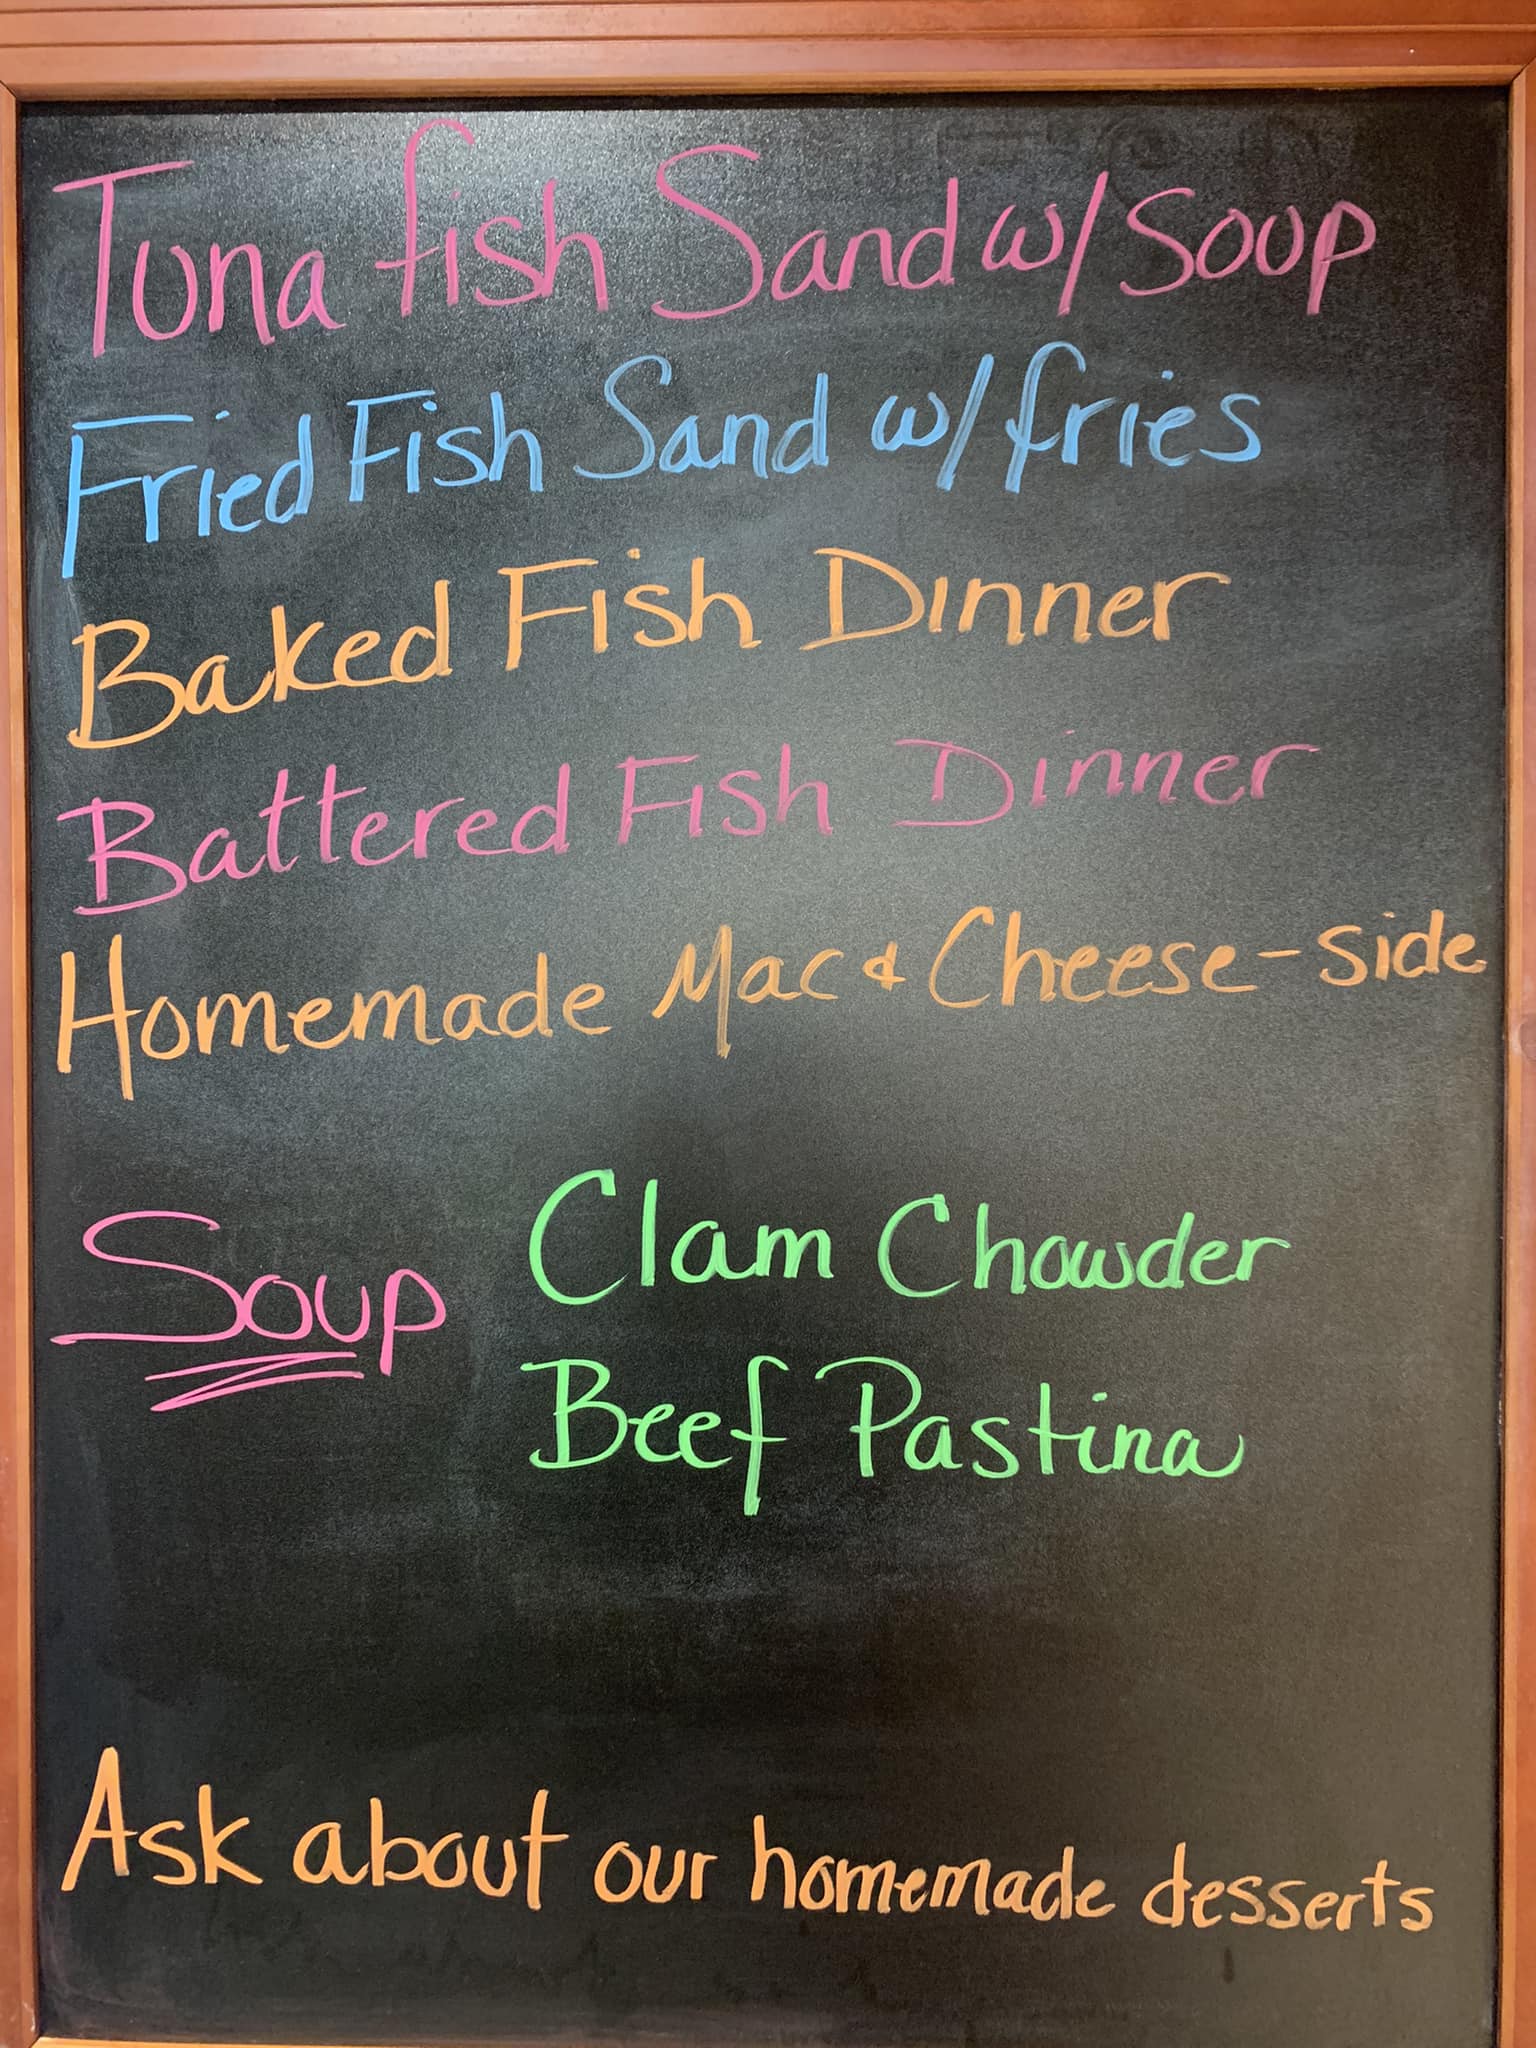 Tuna fish Sand w/ Soup
Fried Fish Sand w/ fries
Baked Fish Dinner
Battered Fish Dinner
Homemade Mac & Cheese - side
Soup
Clam Chowder
Beef Pastina
Ask about our homemade desserts